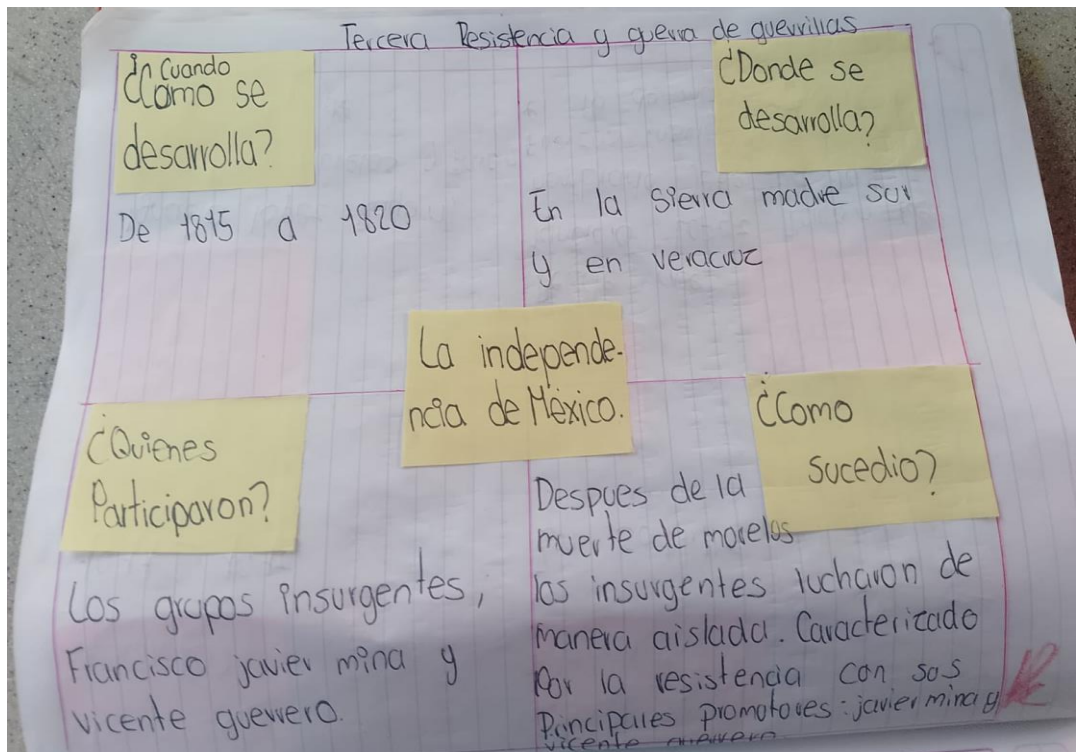 Tercera Resistencia y guerra de guerrillas
¿Cuando
Como se
desarrolla?
De 1815 a 1820
¿Donde se
desarrolla?
En la Sierra madre sur
y en veracruz
La independe-
ncia de México.
¿Quienes
Participaron?
Los grupos insurgentes,
Francisco javier mina y
vicente guerrero.
¿Como
sucedio?
Despues de la
muerte de morelos
los insurgentes lucharon de
manera aislada. Caracterizado
Por la resistencia con sus
Principales promotores: javier mina y
vicente guerrero